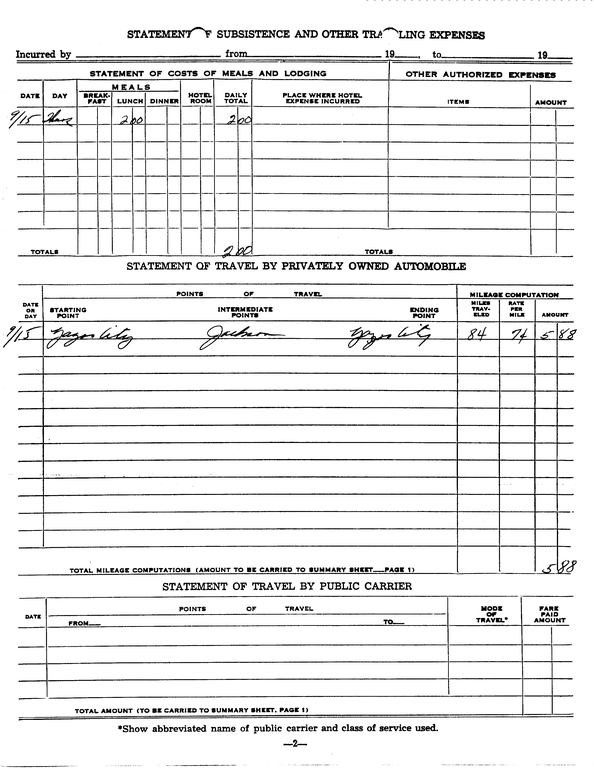 STATEMENT F SUBSISTENCE AND OTHER TRA LING EXPENSES
Incurred by from 19 , to 19
STATEMENT OF COSTS OF MEALS AND LODGING OTHER AUTHORIZED EXPENSES
DATE DAY MEALS BREAK-FAST LUNCH DINNER HOTEL ROOM DAILY TOTAL PLACE WHERE HOTEL EXPENSE INCURRED ITEMS AMOUNT
9/15 Thurs 2 00 2 00
TOTALS 2 00 TOTALS
STATEMENT OF TRAVEL BY PRIVATELY OWNED AUTOMOBILE
POINTS OF TRAVEL MILEAGE COMPUTATION
DATE OR DAY STARTING POINT INTERMEDIATE POINTS ENDING POINT MILES TRAV-ELED RATE PER MILE AMOUNT
9/15 Yazoo City Jackson Yazoo City 84 7¢ 5 88
TOTAL MILEAGE COMPUTATIONS (AMOUNT TO BE CARRIED TO SUMMARY SHEET__PAGE 1) 5 88
STATEMENT OF TRAVEL BY PUBLIC CARRIER
DATE POINTS OF TRAVEL MODE OF TRAVEL* FARE PAID AMOUNT
FROM__ TO__
TOTAL AMOUNT (TO BE CARRIED TO SUMMARY SHEET, PAGE 1)
*Show abbreviated name of public carrier and class of service used.
—2—